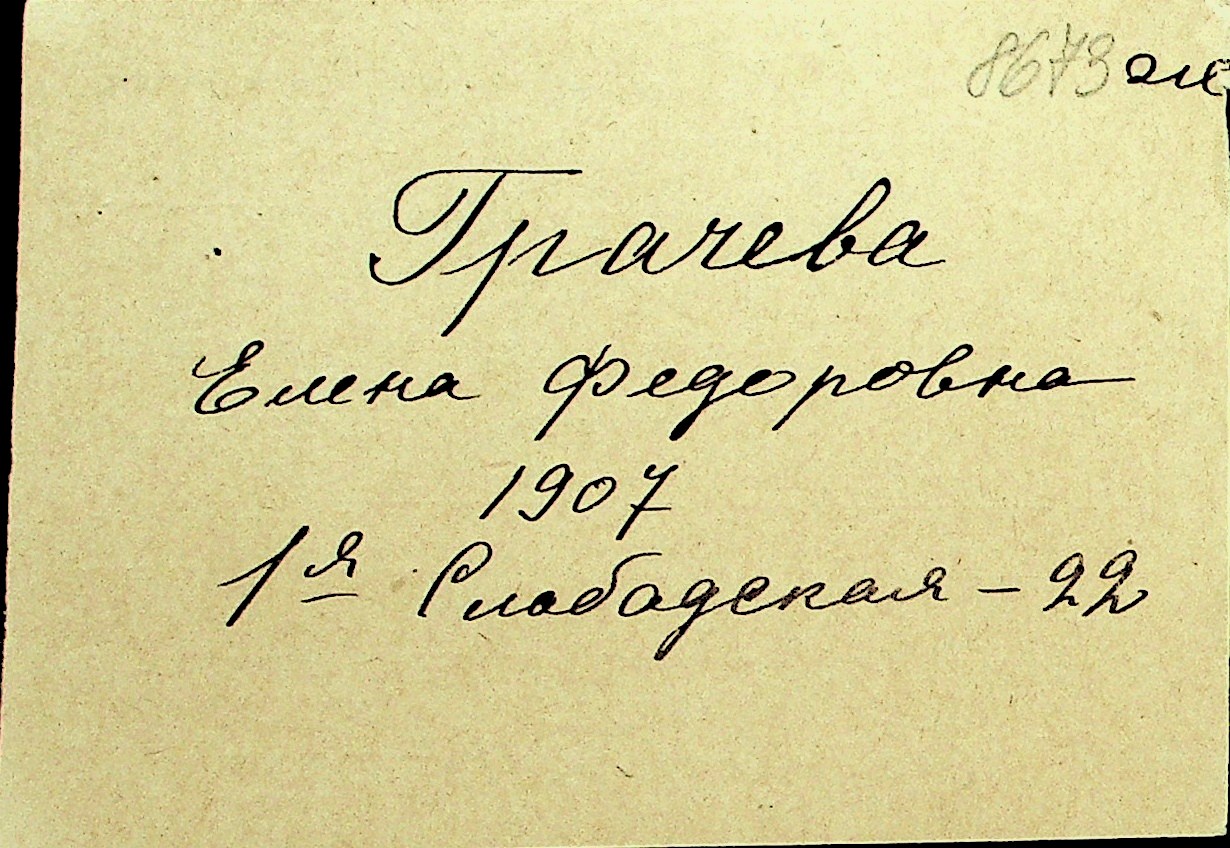 8673 ж
Грачева
Елена Федоровна
1907
1я Слободская - 22